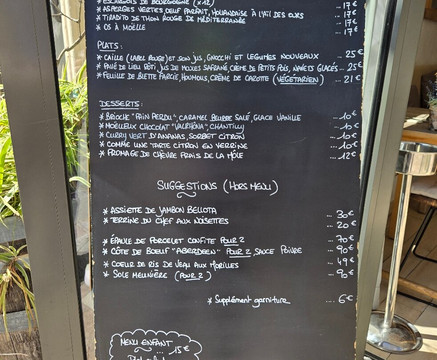 * ESCARGOTS DE BOURGOGNE (X12) ... 17€
* ASPERGES VERTES OEUF PARFAIT, HOLLANDAISE À L'AIL DES OURS ... 17€
* TIRADITO DE THON ROUGE DE MÉDITERRANÉE ... 17€
* OS À MOËLLE ... 17€
PLATS :
* CAILLE (LABEL ROUGE) ET SON JUS, GNOCCHI ET LEGUMES NOUVEAUX ... 25€
* PAVÉ DE LIEU RÔTI, JUS DE MOULES SAFRANÉ, CRÈME DE PETITS POIS, NAVETS GLACÉS ... 25€
* FEUILLE DE BLETTE FARCIS, HOUMOUS, CRÈME DE CAROTTE (VÉGÉTARIEN) ... 21€
DESSERTS :
* BRIOCHE "PAIN PERDU", CARAMEL BEURRE SALÉ, GLACE VANILLE ... 10€
* MOËLLEUX CHOCOLAT "VALRHONA", CHANTILLY ... 10€
* CURRY VERT D'ANANAS, SORBET CITRON ... 10€
* COMME UNE TARTE CITRON EN VERRINE ... 10€
* FROMAGE DE CHÈVRE FRAIS DE LA MÔLE ... 12€
SUGGESTIONS (HORS MENU)
* ASSIETTE DE JAMBON BELLOTA ... 30€
* TERRINE DU CHEF AUX NOISETTES ... 20€
* ÉPAULE DE PORCELET CONFITE POUR 2 ... 70€
* CÔTE DE BOEUF "ABERDEEN" POUR 2, SAUCE POIVRE ... 90€
* COEUR DE RIS DE VEAU AUX MORILLES ... 49€
* SOLE MEUNIÈRE (POUR 2) ... 90€
* Supplément garniture ... 6€
MENU ENFANT
... 15€